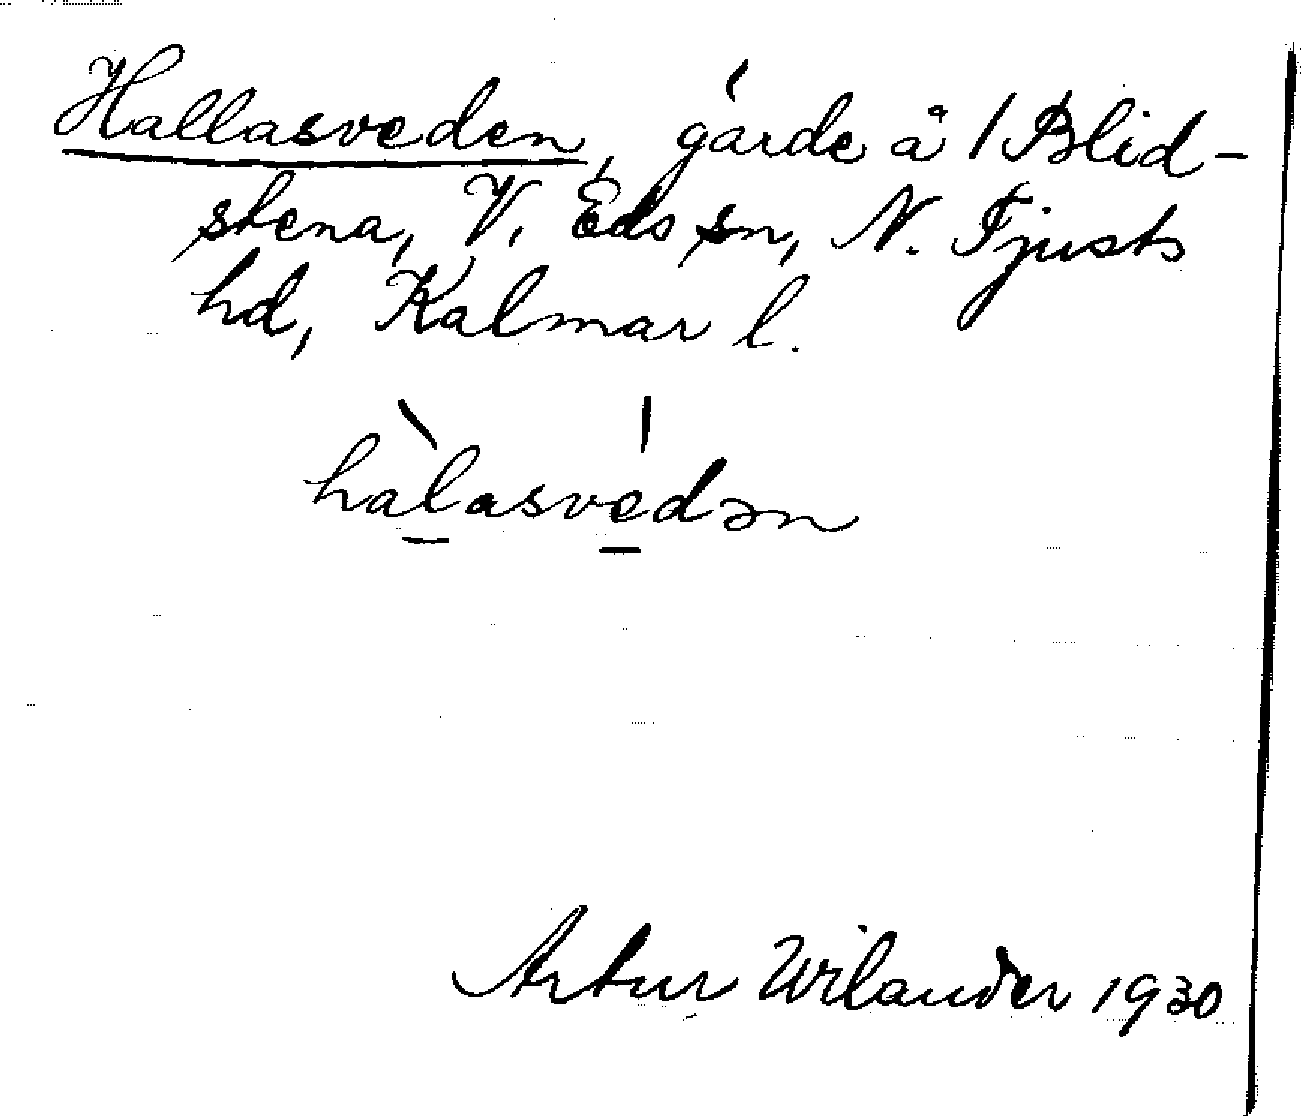 Hallasveden, gärde å 1 Blid-
stena, V. Eds sn, N. Tjusts
hd, Kalmar l.
hàlasvédən
Artur Wilander 1930